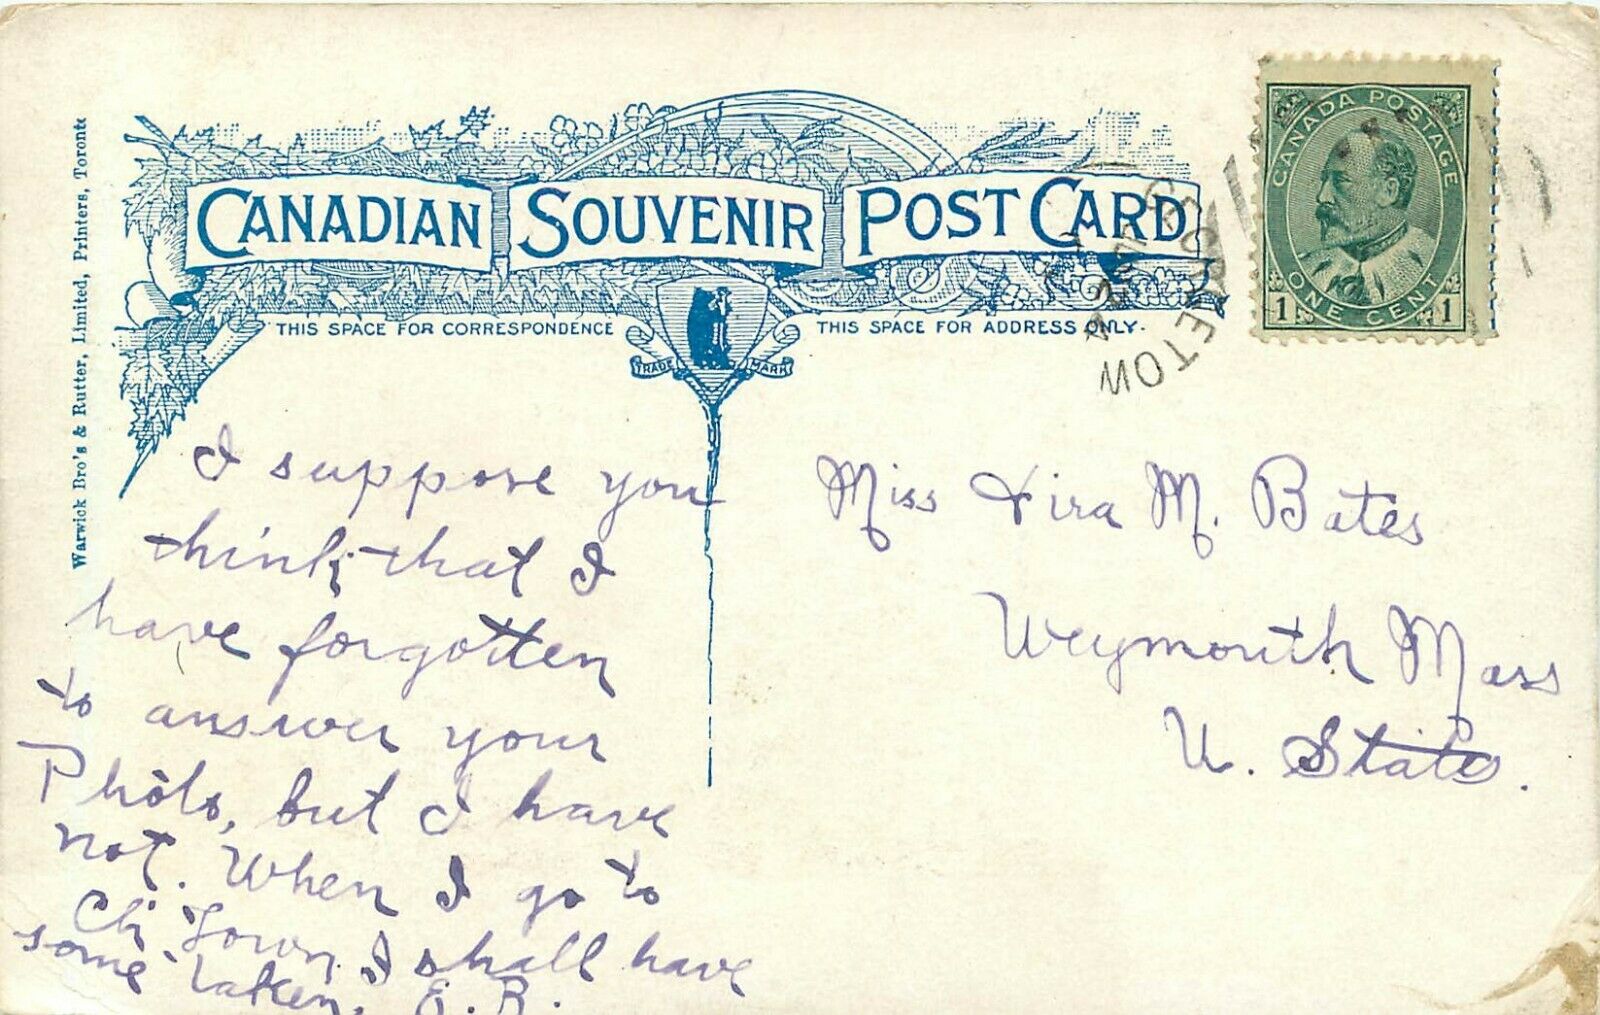 Warwick Bro's & Rutter, Limited, Printers, Toronto
CANADIAN SOUVENIR POST CARD
THIS SPACE FOR CORRESPONDENCE
THIS SPACE FOR ADDRESS ONLY.
TRADE MARK
CANADA POSTAGE
1 ONE CENT 1
GEORGETOW
24
I suppose you
think that I
have forgotten
to answer your
Photo, but I have
not. When I go to
Ch. Town I shall have
some taken. E. R.
Miss Vira M. Bates
Weymouth Mass
U. States.